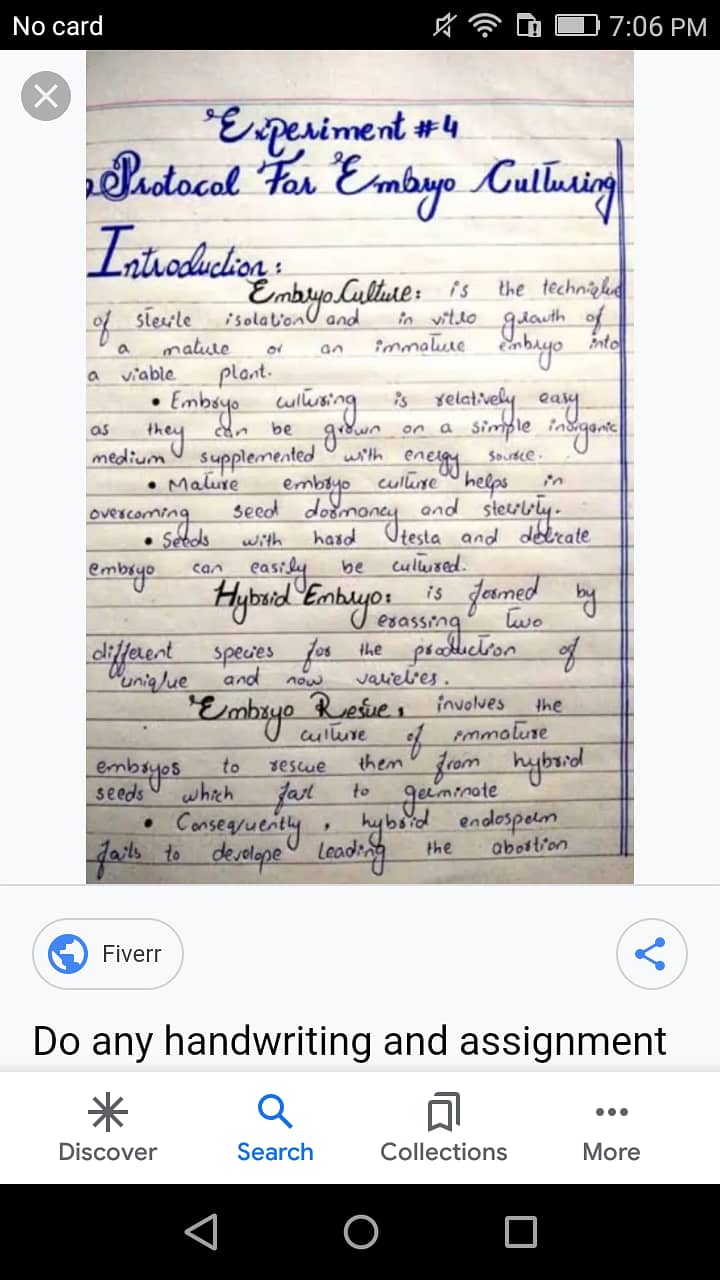 No card
7:06 PM
Experiment #4
Protocal For Embryo Culturing
Introduction:
Embryo Culture: is the technique
of sterile isolation and in vitro growth of
a mature or an immature embryo into
a viable plant.
• Embryo culturing is relatively easy
as they can be grown on a simple inorganic
medium supplemented with energy source.
• Mature embryo culture helps in
overcoming seed dormancy and sterility.
• Seeds with hard testa and delicate
embryo can easily be cultured.
Hybrid Embryo: is formed by
crassing two
different species for the production of
unique and now varieties.
Embryo Resue, involves the
culture of immature
embryos to rescue them from hybrid
seeds which fail to germinate
• Consequently, hybrid endosperm
fails to develope leading the abortion
Fiverr
Do any handwriting and assignment
Discover
Search
Collections
More